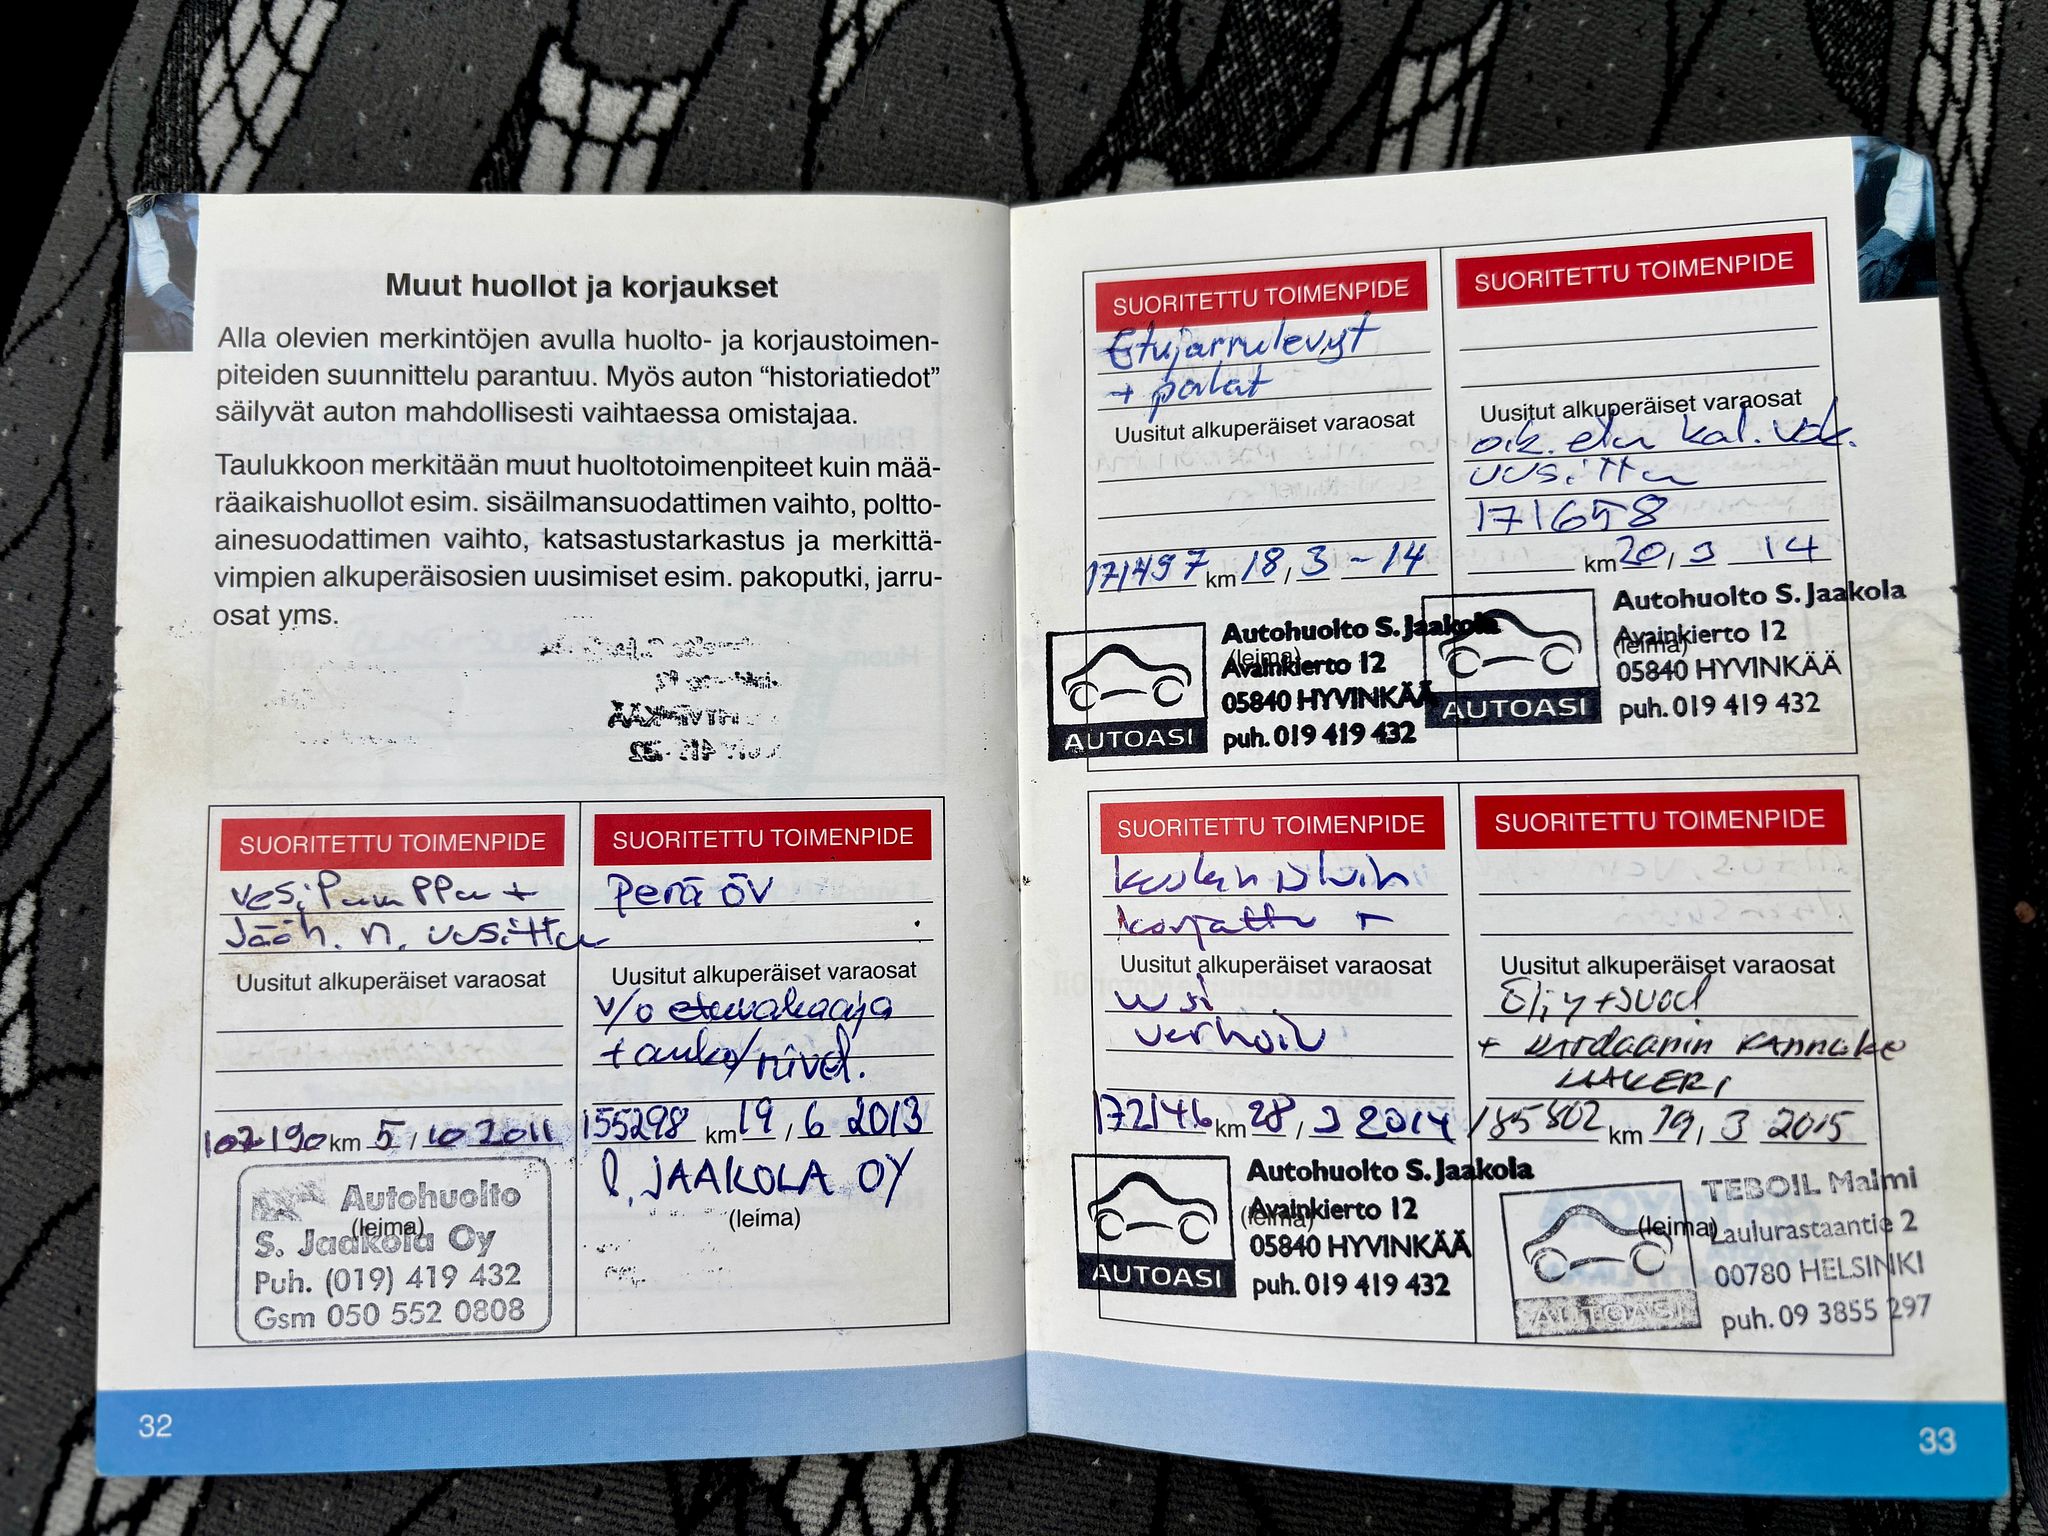 Muut huollot ja korjaukset
Alla olevien merkintöjen avulla huolto- ja korjaustoimen-
piteiden suunnittelu parantuu. Myös auton “historiatiedot”
säilyvät auton mahdollisesti vaihtaessa omistajaa.
Taulukkoon merkitään muut huoltotoimenpiteet kuin mää-
räaikaishuollot esim. sisäilmansuodattimen vaihto, poltto-
ainesuodattimen vaihto, katsastustarkastus ja merkittä-
vimpien alkuperäisosien uusimiset esim. pakoputki, jarru-
osat yms.
SUORITETTU TOIMENPIDE
vesipumppu +
Jääh. n. uusittu
Uusitut alkuperäiset varaosat
107190 km 5 / 10 2011
Autohuolto
(leima)
S. Jaakola Oy
Puh. (019) 419 432
Gsm 050 552 0808
SUORITETTU TOIMENPIDE
perä öv
Uusitut alkuperäiset varaosat
v/o etuvakaaja
+ nivel.
155298 km 19 / 6 2013
JAAKOLA OY
(leima)
32
SUORITETTU TOIMENPIDE
Etujarrulevyt
+ palat
Uusitut alkuperäiset varaosat
171497 km 18 / 3 -14
Autohuolto S. Jaakola
(leima)
Avainkierto 12
05840 HYVINKÄÄ
puh. 019 419 432
AUTOASI
SUORITETTU TOIMENPIDE
Uusitut alkuperäiset varaosat
oik. etu kol. vak.
uusittu
171658
km 20 / 3 14
Autohuolto S. Jaakola
Avainkierto 12
(leima)
05840 HYVINKÄÄ
puh. 019 419 432
AUTOASI
SUORITETTU TOIMENPIDE
korjattu +
Uusitut alkuperäiset varaosat
usi
verhoilu
172146 km 28 / 3 2014
Autohuolto S. Jaakola
Avainkierto 12
(leima)
05840 HYVINKÄÄ
puh. 019 419 432
AUTOASI
SUORITETTU TOIMENPIDE
Uusitut alkuperäiset varaosat
Öljy+suod
+ kardaanin kannake
LAAKERI
185802 km 19 / 3 2015
TEBOIL Malmi
(leima)
Laulurastaantie 2
00780 HELSINKI
puh. 09 3855 297
AUTOASI
33